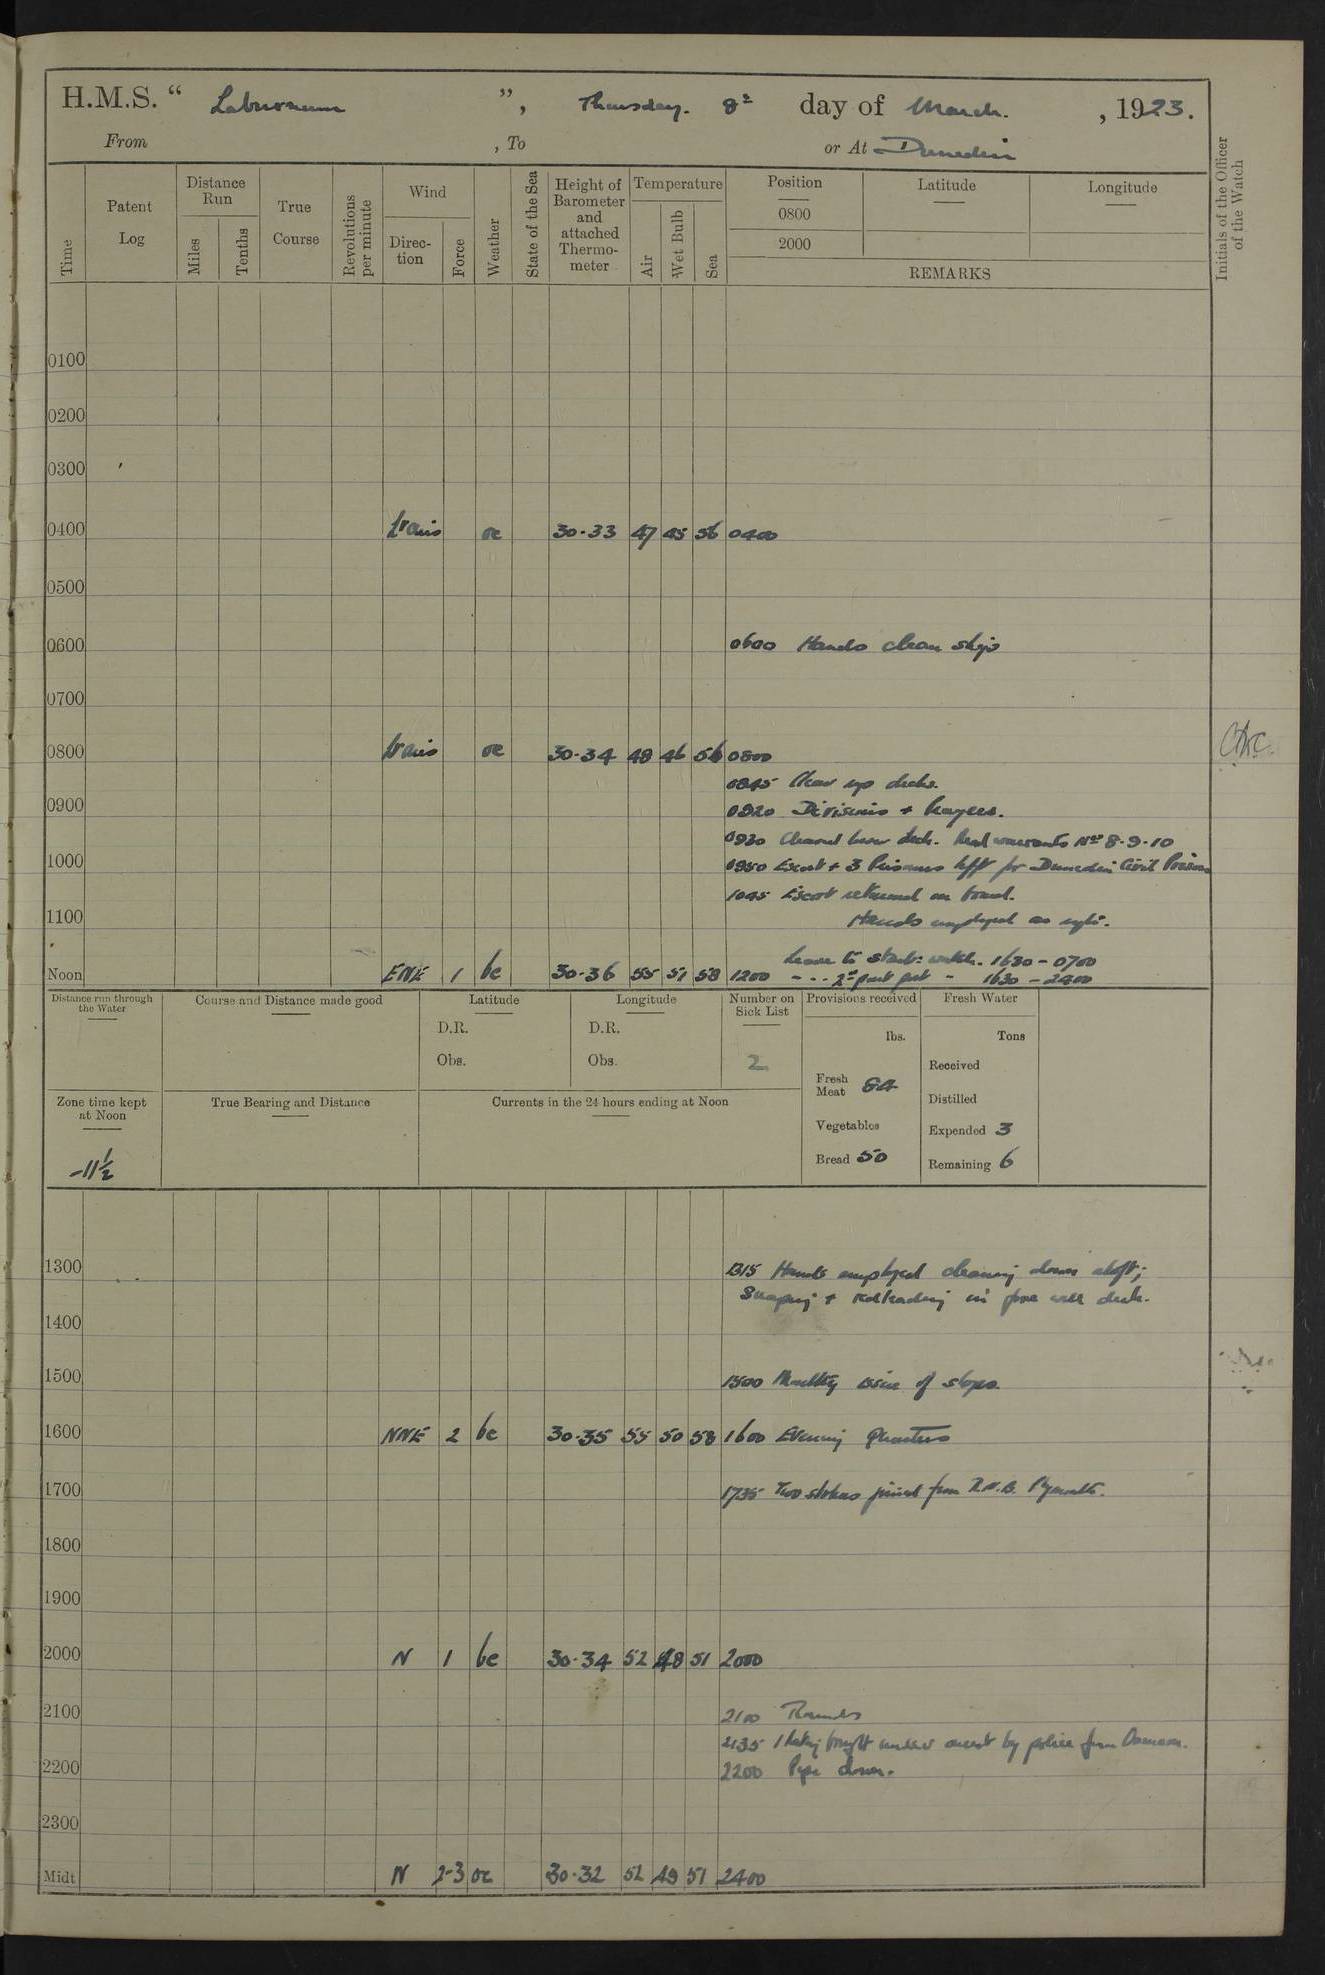 H.M.S. “ Laburnum ”, Thursday. 8th day of March. , 1923.
From , To or At Dunedin
Initials of the Officer of the Watch
Time
Patent Log
Distance Run
Miles
Tenths
True Course
Revolutions per minute
Wind
Direc-tion
Force
Weather
State of the Sea
Height of Barometer and attached Thermo-meter
Temperature
Air
Wet Bulb
Sea
Position
0800
2000
Latitude
Longitude
REMARKS
0100
0200
0300
0400 airs oc 30·33 47 45 56 0400
0500
0600 0600 Hands clean ship
0700
0800 airs oc 30·34 48 46 56 0800
0845 Clear up decks.
0900 0920 Divisions + Prayers.
0930 Cleared lower deck. Read warrants Nos 8·9·10
1000 0950 Escort + 3 Prisoners left for Dunedin Civil Prison
1045 Escort returned on board.
1100 Hands employed as reqte.
Leave to starb: watch. 1630 – 0700
Noon ENE 1 bc 30·36 55 51 58 1200 – · · 2nd part port – 1630 – 2400
Distance run through the Water
Course and Distance made good
Latitude
D.R.
Obs.
Longitude
D.R.
Obs.
Number on Sick List
2
Provisions received
lbs.
Fresh Meat 84
Vegetables
Bread 50
Fresh Water
Tons
Received
Distilled
Expended 3
Remaining 6
Zone time kept at Noon
-11½
True Bearing and Distance
Currents in the 24 hours ending at Noon
1300 1315 Hands employed cleaning down aloft;
Scraping + redleading in fore well deck.
1400
1500 1500 Monthly issue of slops.
1600 NNE 2 bc 30·35 55 50 58 1600 Evening Quarters
1700 1735 Two stokers joined from R.N.B. Plymouth.
1800
1900
2000 N 1 bc 30·34 52 48 51 2000
2100 2100 Rounds
2135 1 Rating brought under arrest by police from Oamaru.
2200 2200 Pipe down.
2300
Midt N 2-3 oc 30·32 52 49 51 2400